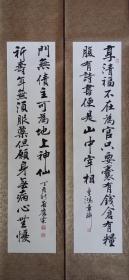 享清福不在為官只要囊有錢倉有糧
腹有詩書便是山中宰相
祈壽年無須服藥但願身無病心無憂
門無債主可為地上神仙